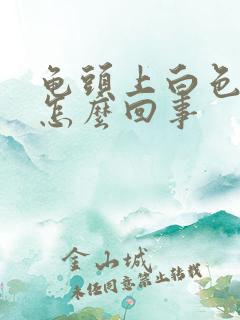 龟頭上白色
怎麼回事
金山城
未经同意禁止转载